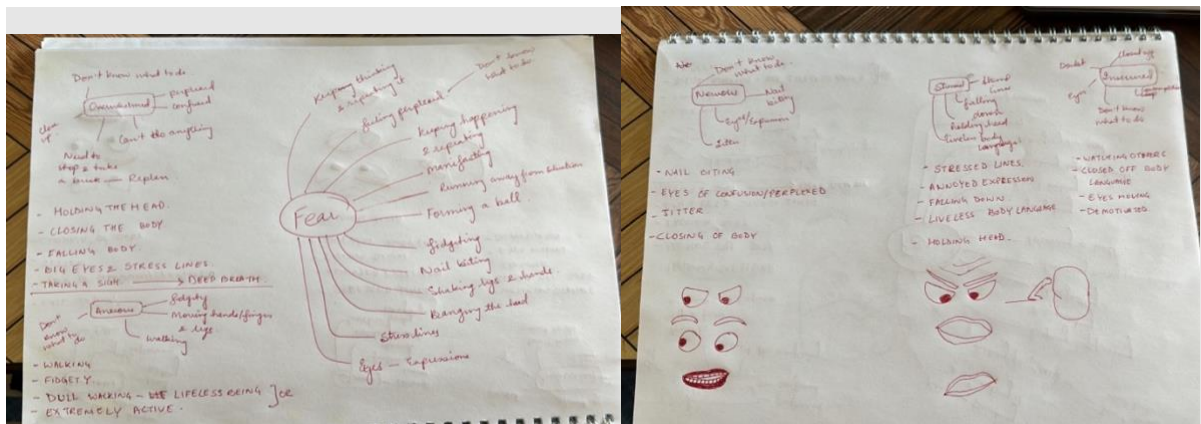 Don't know what to do.
Overwhelmed
perplexed
confused
close
up
Can't do anything
Need to
stop & take
a break — Replan
- HOLDING THE HEAD.
- CLOSING THE BODY.
- FALLING BODY.
- BIG EYES & STRESS LINES.
- TAKING A SIGH. DEEP BREATH.
Anxious
fidgety
Moving hands/fingers
& legs
walking
Don't
know
what to
do
- WALKING
- FIDGETY
- DULL WALKING - LIFELESS BEING
OR
- EXTREMELY ACTIVE.
Fear
Keeping thinking
& repeating it
feeling perplexed
Don't know
what to do
Keeping happening
& repeating
manifesting
Running away from situation
Forming a ball.
fidgeting
Nail biting
Shaking legs & hands
Banging the head
Stress lines
Eyes — Expressions
Nervous
Don't know
what to do.
Nail
biting
Eyes/Expression
Jitter
- NAIL BITING
- EYES OF CONFUSION/PERPLEXED
- JITTER
- CLOSING OF BODY
Stressed
lines
falling
down
holding head
body
language
- STRESSED LINES.
- ANNOYED EXPRESSION
- FALLING DOWN.
- LIVELESS BODY LANGUAGE
- HOLDING HEAD.
Doubt
Insecured
Eyes
Don't know
what to do
- WATCHING OTHERS
- CLOSED OFF BODY
LANGUAGE
- EYES MOVING
- DEMOTIVATED